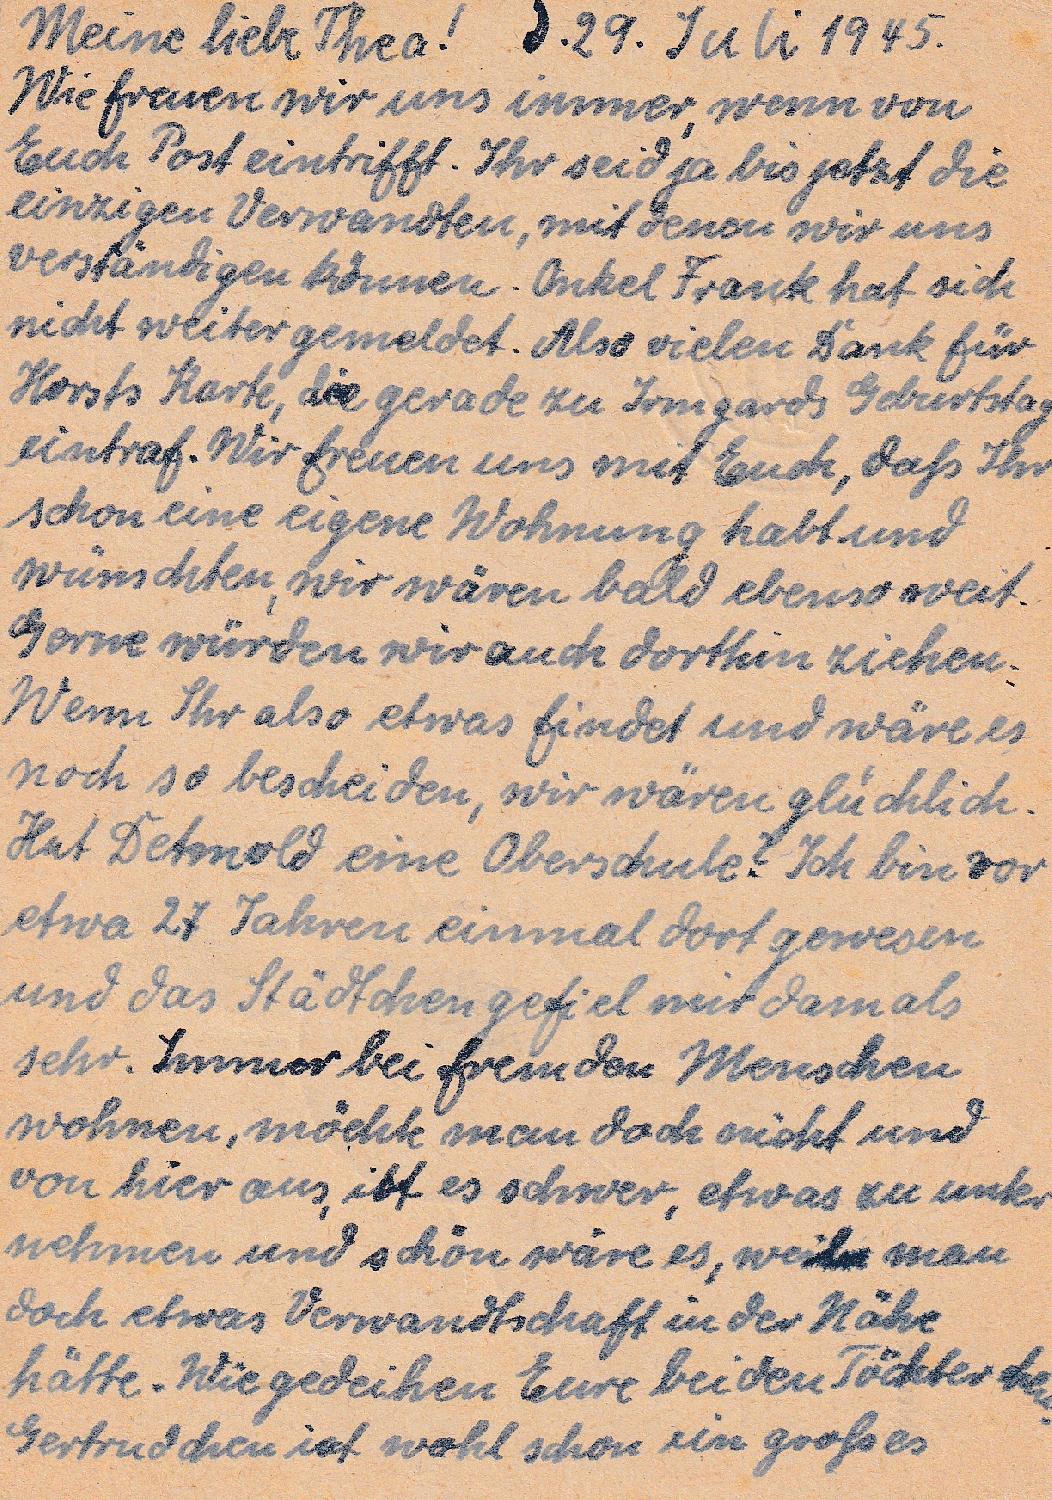 Meine liebe Thea! d. 29. Juli 1945.
Wie freuen wir uns immer, wenn von
Euch Post eintrifft. Ihr seid ja bis jetzt die
einzigen Verwandten, mit denen wir uns
verständigen können. Onkel Frank hat sich
nicht weiter gemeldet. Also vielen Dank für
Horsts Karte, die gerade zu Irmgards Geburtstag
eintraf. Wir freuen uns mit Euch, daß Ihr
schon eine eigene Wohnung habt und
wünschten, wir wären bald ebenso weit.
Gerne würden wir auch dorthin ziehen.
Wenn Ihr also etwas findet und wäre es
noch so bescheiden, wir wären glücklich.
Hat Detmold eine Oberschule? Ich bin vor
etwa 27 Jahren einmal dort gewesen
und das Städtchen gefiel mir damals
sehr. Immer bei fremden Menschen
wohnen, möchte man doch nicht und
von hier aus, ist es schwer, etwas zu unter
nehmen und schön wäre es, weil man
doch etwas Verwandtschaft in der Nähe
hätte. Wie gedeihen Eure beiden Töchterchen
Gertrudchen ist wohl schon ein großes